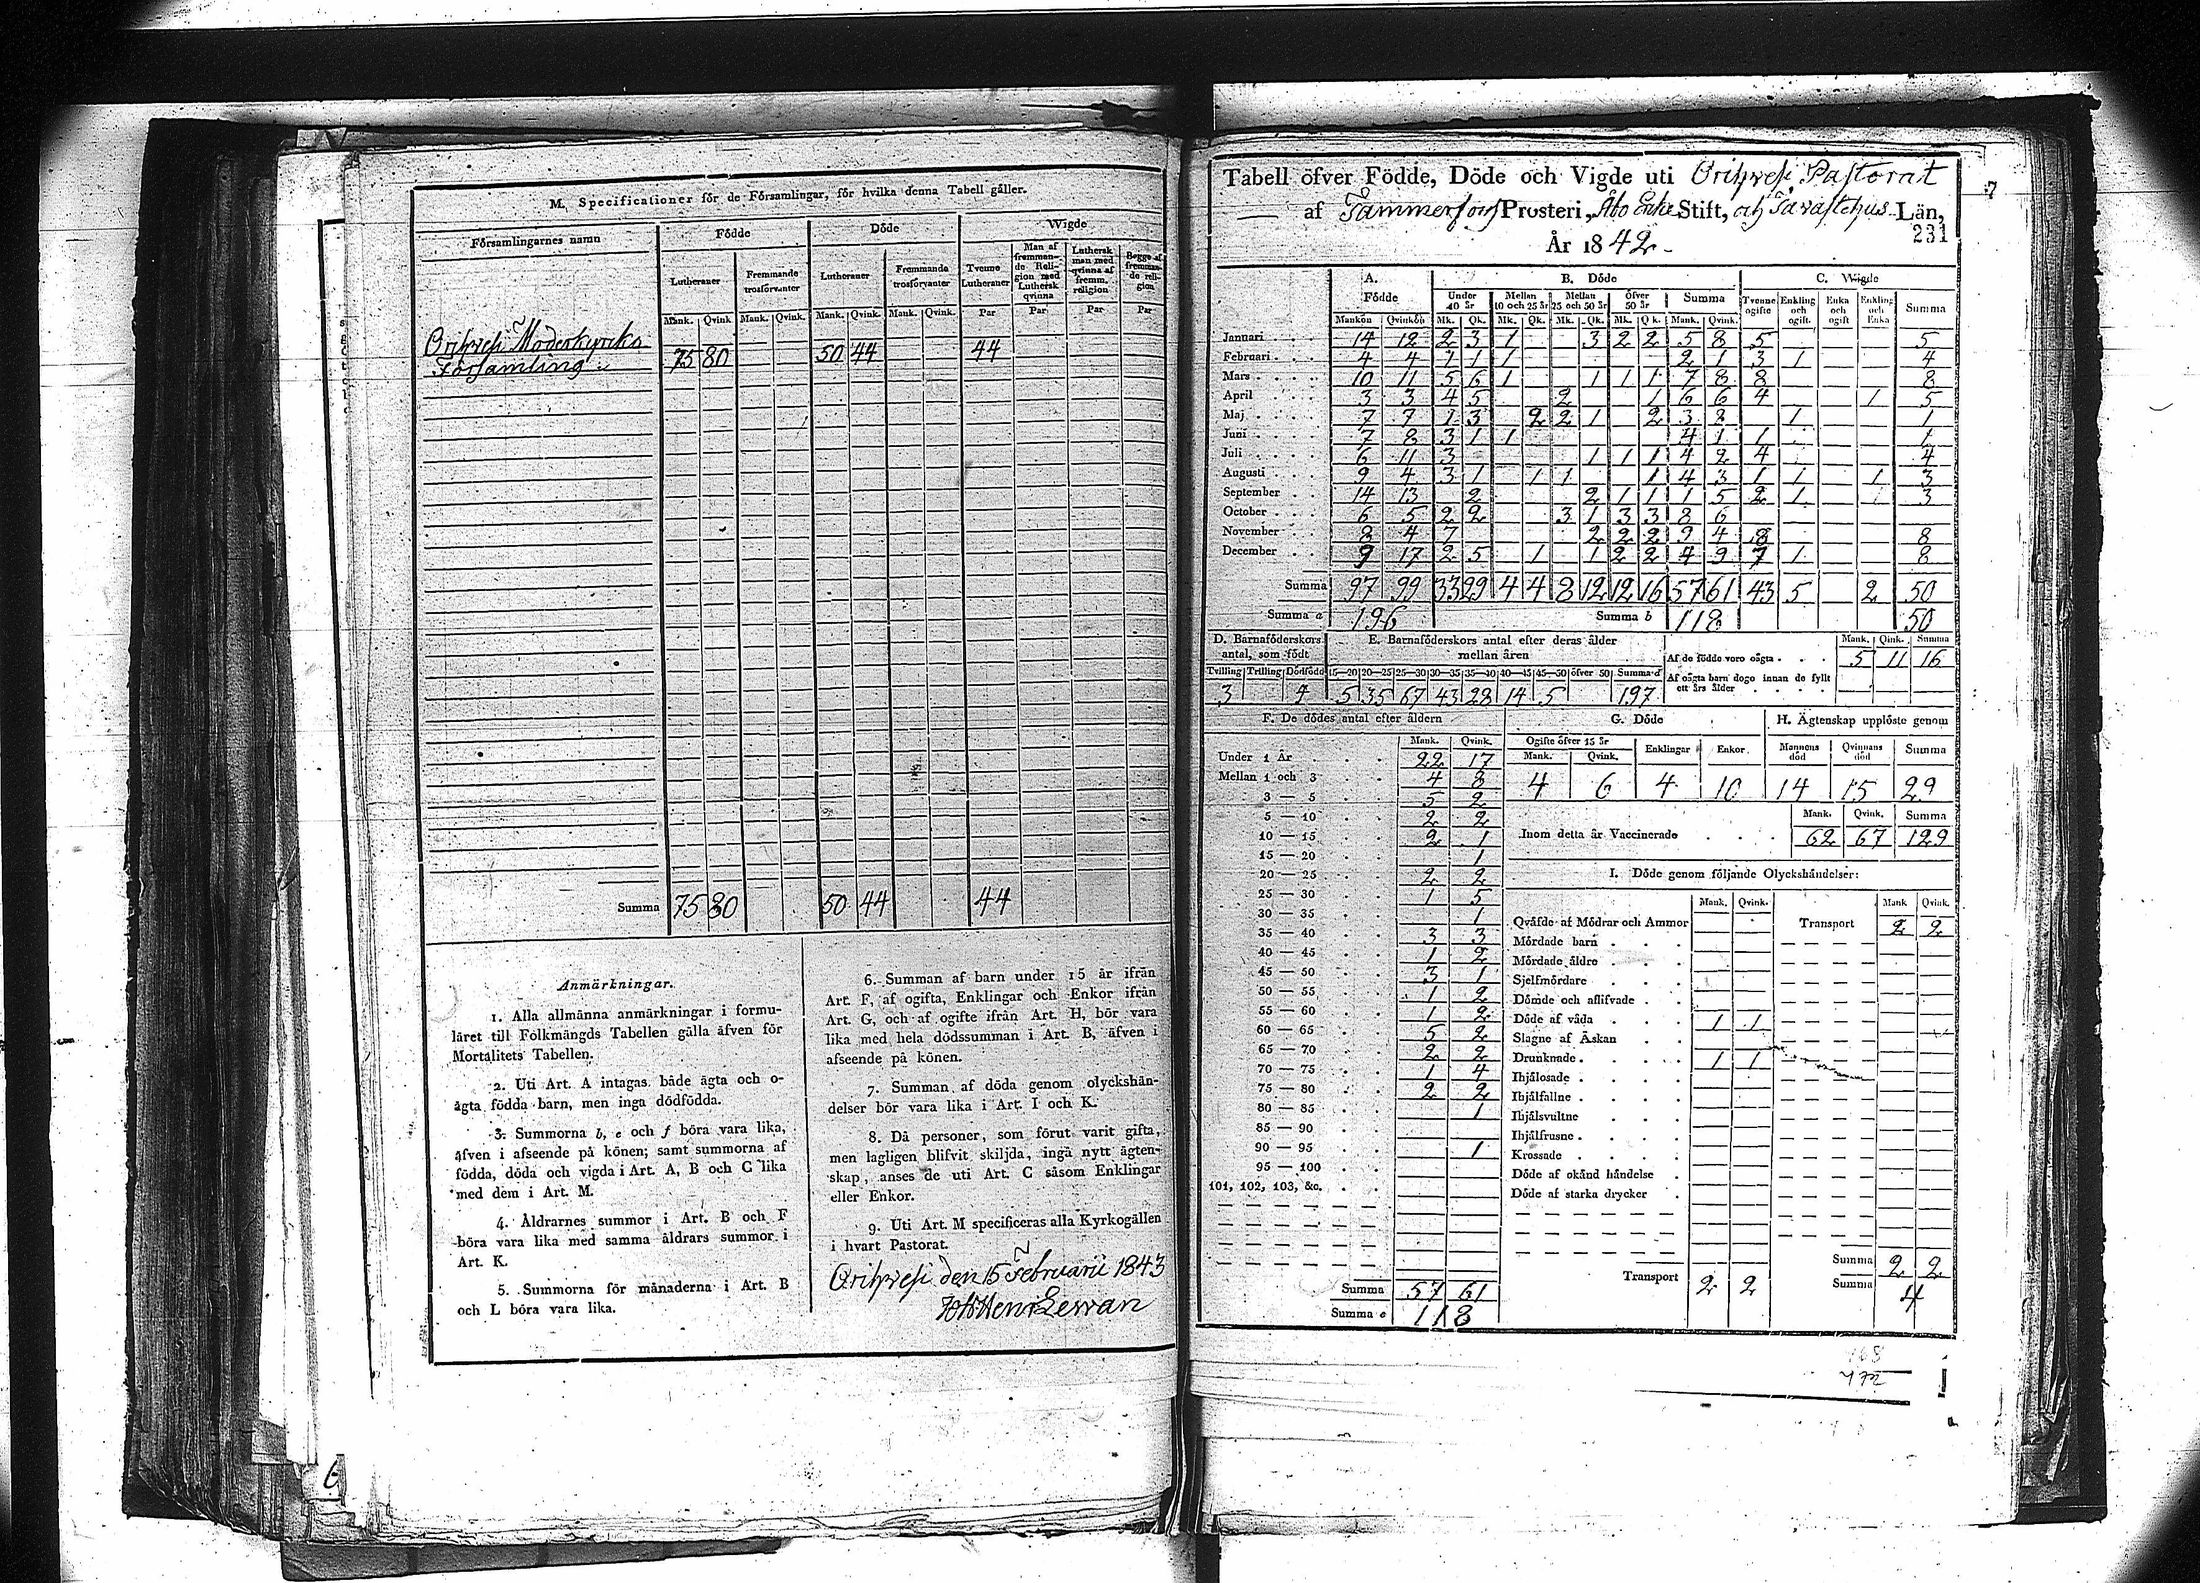 M. Specificationer för de Församlingar, för hvilka denna Tabell gäller.
Församlingarnes namn Födde Döde Wigde
Lutheraner Fremmande trosförvanter Lutheraner Fremmande trosförvanter Tvenne Lutheraner Man af fremmande Religion med Luthersk qvinna Luthersk man med qvinna af fremm. religion Begge af fremmande religion
Mank. Qvink. Mank. Qvink. Mank. Qvink. Mank. Qvink. Par Par Par Par
Orihvesi Moderkyrko
Församling 75 80 50 44 44
Summa 75 80 50 44 44
Anmärkningar.
1. Alla allmänna anmärkningar i formu-
läret till Folkmängds Tabellen gälla äfven för
Mortalitets Tabellen.
2. Uti Art. A intagas både ägta och o-
ägta födda barn, men inga dödfödda.
3. Summorna b, e och f böra vara lika,
äfven i afseende på könen; samt summorna af
födda, döda och vigda i Art. A, B och C lika
med dem i Art. M.
4. Åldrarnes summor i Art. B och F
böra vara lika med samma åldrars summor i
Art. K.
5. Summorna för månaderna i Art. B
och L böra vara lika.
6. Summan af barn under 15 år ifrån
Art. F, af ogifta, Enklingar och Enkor ifrån
Art. G, och af ogifte ifrån Art. H, bör vara
lika med hela dödssumman i Art. B, äfven i
afseende på könen.
7. Summan af döda genom olyckshän-
delser bör vara lika i Art. I och K.
8. Då personer, som förut varit gifta,
men lagligen blifvit skiljda, ingå nytt ägten-
skap, anses de uti Art. C såsom Enklingar
eller Enkor.
9. Uti Art. M specificeras alla Kyrkogällen
i hvart Pastorat.
Orihvesi den 15 Februarii 1843
Joh Henr Lewan
Tabell öfver Födde, Döde och Vigde uti Orihvesi Pastorat
af Tammerfors Prosteri, Åbo Erke Stift, och Tavastehus Län,
231
År 1842
A. Födde B. Döde C. Wigde
Under 10 år Mellan 10 och 25 år Mellan 25 och 50 år Öfver 50 år Summa Tvenne ogifte Enkling och ogift. Enka och ogift Enkling och Enka Summa
Mankön Qvinkön Mk. Qk. Mk. Qk. Mk. Qk. Mk. Qk. Mank. Qvink.
Januari 14 12 2 3 1 3 2 2 5 8 5 5
Februari 4 4 1 1 1 2 1 3 1 4
Mars 10 11 5 6 1 1 1 1 7 8 8 8
April 3 3 4 5 2 1 6 6 4 1 5
Maj 7 7 1 3 2 2 1 2 3 8 1 1
Juni 7 8 3 1 1 4 1 1 1
Juli 6 11 3 1 1 1 4 2 4 4
Augusti 9 4 3 1 1 1 1 4 3 1 1 1 3
September 14 13 2 2 1 1 1 5 2 1 3
October 6 5 2 2 3 1 3 3 8 6
November 8 4 7 2 2 2 9 4 8 8
December 9 17 2 5 1 1 2 2 4 9 7 1 8
Summa 97 99 33 29 4 4 8 12 12 16 57 61 43 5 2 50
Summa a 196 Summa b 118 50
D. Barnaföderskors antal, som födt
Tvilling Trilling Dödfödde
3 4
E. Barnaföderskors antal efter deras ålder mellan åren
15—20 20—25 25—30 30—35 35—40 40—45 45—50 öfver 50 Summa d
5 35 67 43 28 14 5 197
Mank. Qink. Summa
Af de födde voro oägta 5 11 16
Af oägta barn dogo innan de fyllt
ett års ålder
F. De dödes antal efter åldern
Mank. Qvink.
Under 1 År 22 17
Mellan 1 och 3 4 8
3 — 5 5 2
5 — 10 2 2
10 — 15 2 1
15 — 20 1
20 — 25 2 2
25 — 30 1 5
30 — 35 1
35 — 40 3 3
40 — 45 1 2
45 — 50 3 1
50 — 55 1 2
55 — 60 1 2
60 — 65 5 2
65 — 70 2 2
70 — 75 1 4
75 — 80 2 2
80 — 85 1
85 — 90
90 — 95 1
95 — 100
101, 102, 103, &c.
Summa 57 61
Summa e 118
G. Döde
Ogifte öfver 15 år Enklingar Enkor
Mank. Qvink.
4 6 4 10
H. Ägtenskap upplöste genom
Mannens död Qvinnans död Summa
14 15 29
Mank. Qvink. Summa
Inom detta år Vaccinerade 62 67 129
I. Döde genom följande Olyckshändelser:
Mank. Qvink. Mank Qvink.
Qväfde af Mödrar och Ammor Transport 2 2
Mördade barn
Mördade äldre
Sjelfmördare
Dömde och aflifvade
Döde af våda 1 1
Slagne af Åskan
Drunknade 1 1
Ihjälosade
Ihjälfallne
Ihjälsvultne
Ihjälfrusne
Krossade
Döde af okänd händelse
Döde af starka drycker
Transport 2 2
Summa 2 2
Summa 4